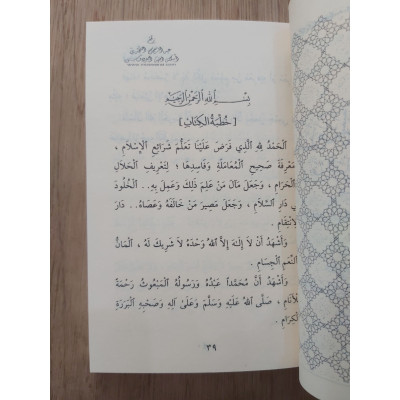 بِسْمِ اللهِ الرَّحْمٰنِ الرَّحِيْمِ
[ خُطْبَةُ الْكِتَابِ ]
الْحَمْدُ لِلهِ الَّذِي فَرَضَ عَلَيْنَا تَعَلُّمَ شَرَائِعِ الْإِسْلَامِ ،
مَعْرِفَةَ صَحِيْحِ الْمُعَامَلَةِ وَفَاسِدِهَا ؛ لِتَعْرِيفِ الْحَلَالِ
الْحَرَامِ ، وَجَعَلَ مَآلَ مَنْ عَلِمَ ذَلِكَ وَعَمِلَ بِهِ .. الْخُلُودَ
ي دَارِ السَّلَامِ ، وَجَعَلَ مَصِيرَ مَنْ خَالَفَهُ وَعَصَاهُ .. دَارَ
الِانْتِقَامِ .
وَأَشْهَدُ أَنْ لَا إِلَهَ إِلَّا اللهُ وَحْدَهُ لَا شَرِيكَ لَهُ ، الْمَانُّ
النِّعَمِ الْجِسَامِ .
وَأَشْهَدُ أَنَّ مُحَمَّداً عَبْدُهُ وَرَسُولُهُ الْمَبْعُوثُ رَحْمَةً
لْأَنَامِ ، صَلَّى اللهُ عَلَيْهِ وَسَلَّمَ وَعَلَىٰ آلِهِ وَصَحْبِهِ الْبَرَرَةِ
الْكِرَامِ .
٣٩